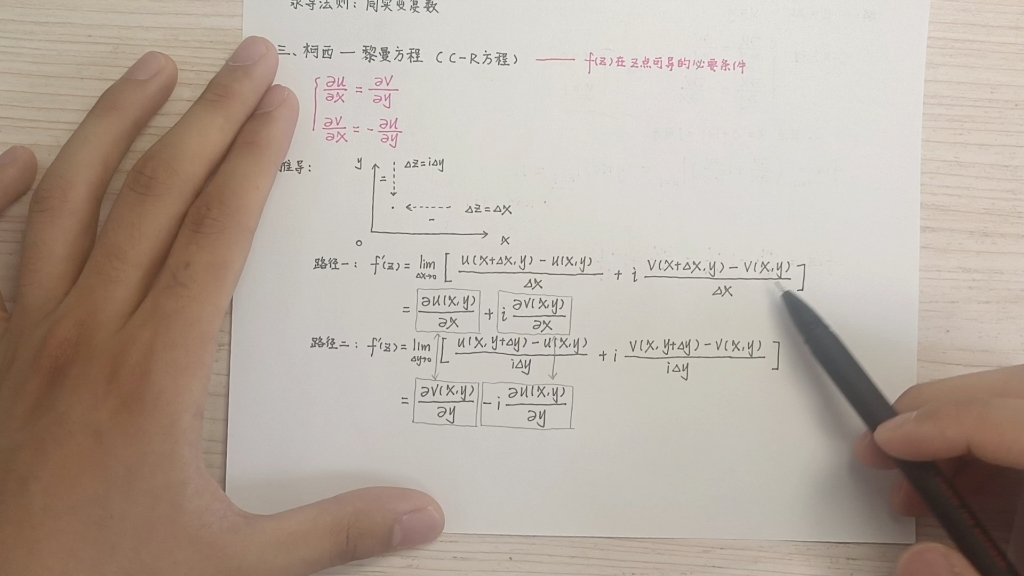 求导法则：同实变函数
三、柯西一黎曼方程（C-R方程）—— f(z)在z点可导的必要条件
∂u/∂x = ∂v/∂y
∂v/∂x = -∂u/∂y
推导：
y
Δz=iΔy
二
Δz=Δx
一
0
x
路径一： f'(z)=lim Δx→0 [ (u(x+Δx,y)-u(x,y))/Δx + i (v(x+Δx,y)-v(x,y))/Δx ]
= ∂u(x,y)/∂x + i ∂v(x,y)/∂x
路径二： f'(z)=lim Δy→0 [ (u(x,y+Δy)-u(x,y))/iΔy + i (v(x,y+Δy)-v(x,y))/iΔy ]
= ∂v(x,y)/∂y - i ∂u(x,y)/∂y